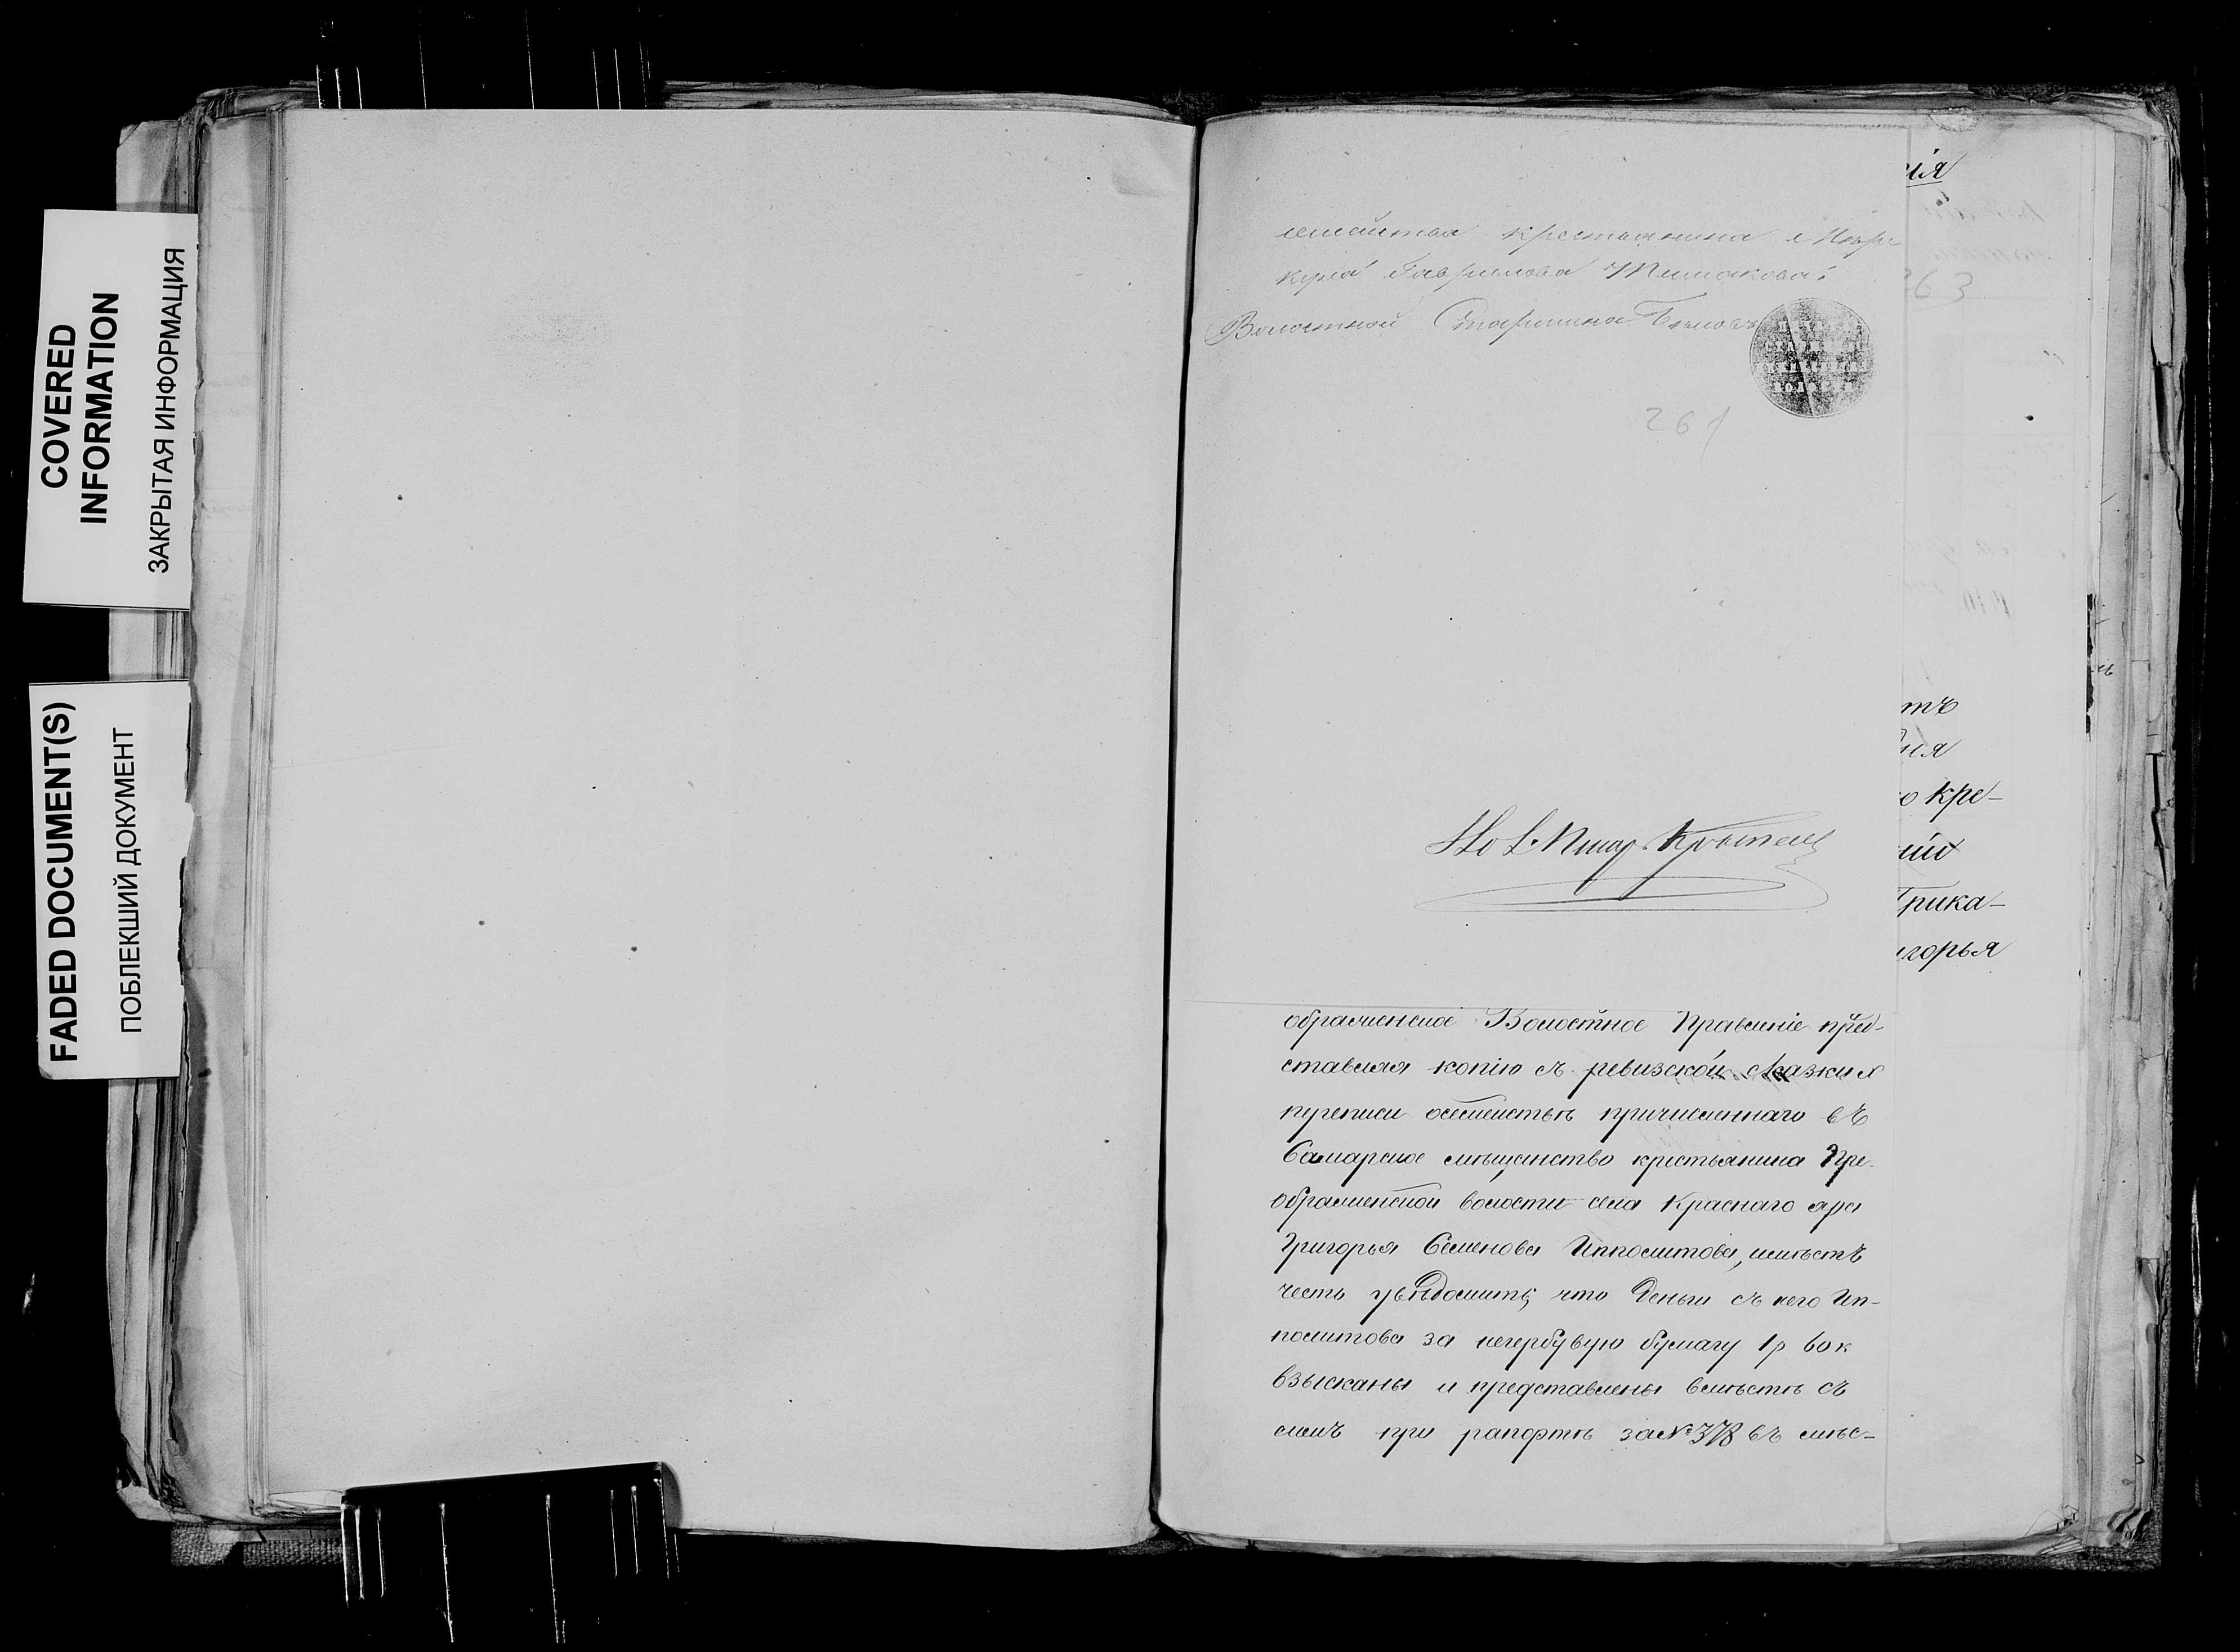 COVERED
INFORMATION
ЗАКРЫТАЯ ИНФОРМАЦИЯ
FADED DOCUMENT(S)
ПОБЛЕКШИЙ ДОКУМЕНТ
семейства крестьянина Мер-
курiя Гаврилова
Волостной Старшина Бѣловъ
261
ображенское Волостное Правленiе пред-
ставляя копiю съ ревизской сказки X
переписи осемействѣ причисленнаго въ
Самарское мѣщанство крестьянина Пре-
ображенской волости села Краснаго яра
Григорья Семенова Ипполитова, имѣетъ
честь увѣдомить, что деньги съ него Ип-
политова за негербувую бумагу 1р 60к
взысканы и представлены вмѣстѣ съ
симъ при рапортѣ за № 378 въ мѣс-
iя
263
тъ
нiя
о кре-
нiи
Прика-
игорья